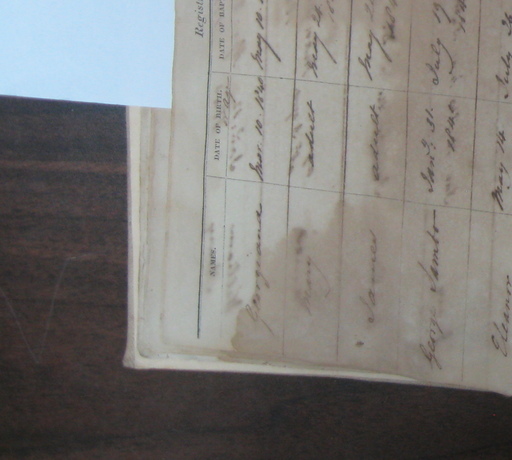 Regist
NAMES. DATE OF BIRTH. DATE OF BAP
or Age
Georgiana Mar. 10. 1840 May 10.
Mary adult May 24
James adult May 2
George Sambo Jany. 31. July 19
1840 184
Eleanor May 14 July 26